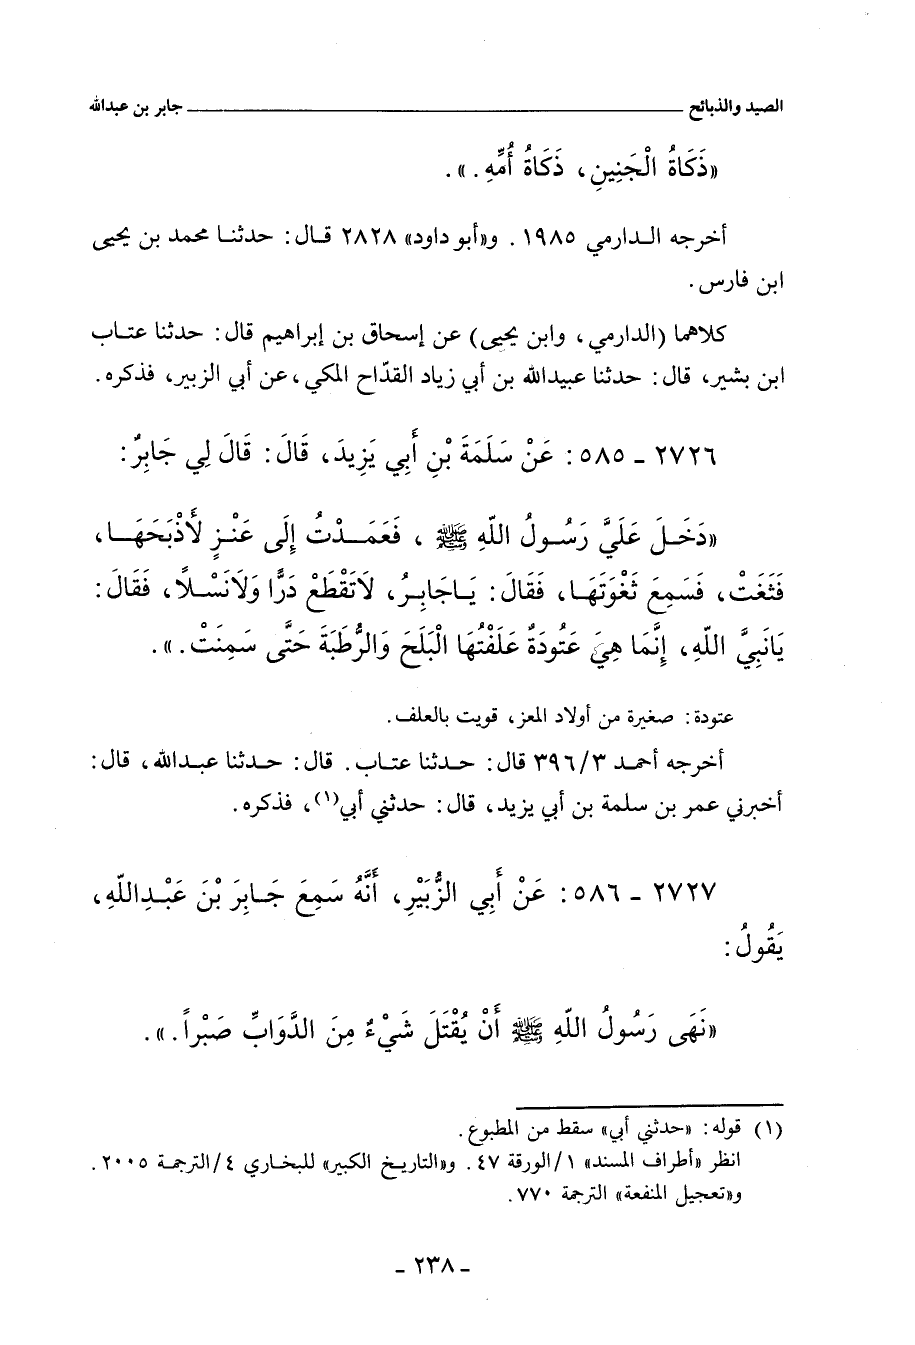 الصيد والذبائح ــــــــــــــــــــ جابر بن عبدالله
«ذَكَاةُ الْجَنِينِ، ذَكَاةُ أُمِّهِ.».
أخرجه الـدارمي ١٩٨٥. و«أبو داود» ٢٨٢٨ قـال: حدثنـا محمد بن يحيى
ابن فارس.
كلاهما (الدارمي، وابن يحيى) عن إسحاق بن إبراهيم قال: حدثنا عتـاب
ابن بشير، قال: حدثنا عبيدالله بن أبي زياد القدّاح المكي، عن أبي الزبير، فذكره.
٢٧٢٦ ـ ٥٨٥: عَنْ سَلَمَةَ بْنِ أَبِي يَزِيدَ، قَالَ: قَالَ لِي جَابِرٌ:
«دَخَـلَ عَلَيَّ رَسُـولُ اللّهِ ﷺ ، فَعَمَـدْتُ إِلَى عَنْـزٍ لأَذْبَحَهَـا،
فَثَغَتْ، فَسَمِعَ ثَغْوَتَهَـا، فَقَالَ: يَـاجَابِـرُ، لاَتَقْطَعْ دَرًّا وَلاَنَسْـلاً، فَقَالَ:
يَانَبِيَّ اللّهِ، إِنَّمَا هِيَ عَتُودَةٌ عَلَفْتُهَا الْبَلَحَ وَالرُّطَبَةَ حَتَّى سَمِنَتْ.».
عتودة: صغيرة من أولاد المعز، قويت بالعلف.
أخرجه أحمـد ٣٩٦/٣ قال: حـدثنا عتـاب. قال: حـدثنا عبـدالله، قال:
أخبرني عمر بن سلمة بن أبي يزيد، قال: حدثني أبي(١)، فذكره.
٢٧٢٧ ـ ٥٨٦: عَنْ أَبِي الزُّبَيْرِ، أَنَّهُ سَمِعَ جَـابِرَ بْنَ عَبْـدِاللّهِ،
يَقُولُ:
«نَهَى رَسُولُ اللّهِ ﷺ أَنْ يُقْتَلَ شَيْءٌ مِنَ الدَّوَابِّ صَبْراً.».
(١) قوله: «حدثني أبي» سقط من المطبوع.
انظر «أطراف المسند» ١/الورقة ٤٧. و«التاريخ الكبير» للبخاري ٤/الترجمة ٢٠٠٥.
و«تعجيل المنفعة» الترجمة ٧٧٠.
ـ ٢٣٨ ـ